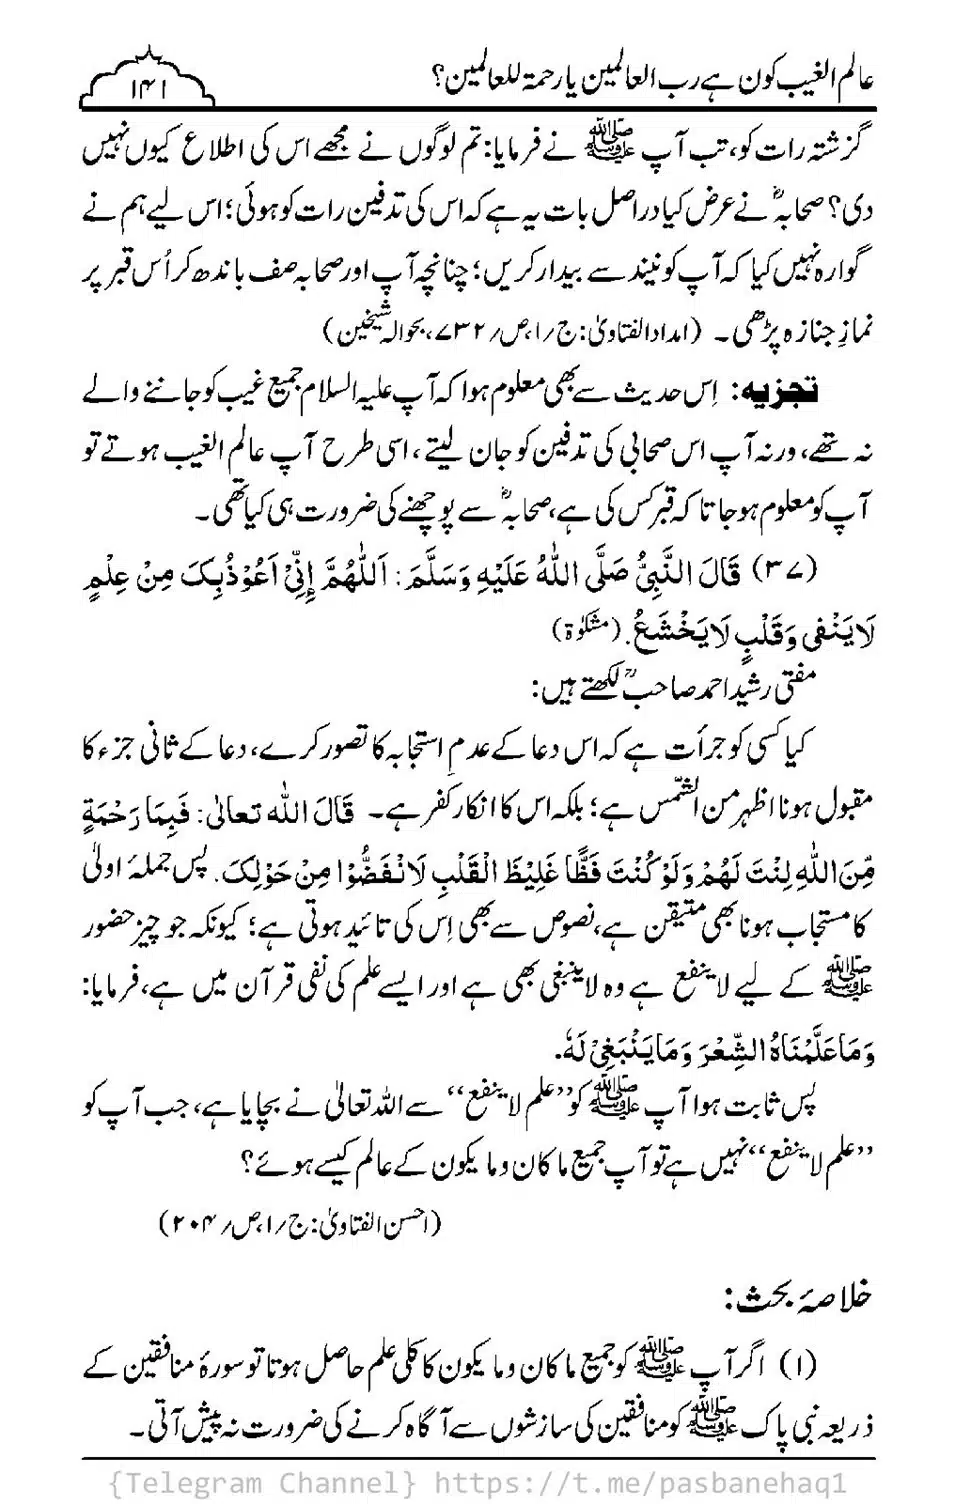 عالم الغیب کون ہے رب العالمین یا رحمۃ للعالمین؟
۱۴۱
گزشتہ رات کو، تب آپ ﷺ نے فرمایا: تم لوگوں نے مجھے اس کی اطلاع کیوں نہیں
دی؟ صحابہؓ نے عرض کیا دراصل بات یہ ہے کہ اس کی تدفین رات کو ہوئی؛ اس لیے ہم نے
گوارہ نہیں کیا کہ آپ کو نیند سے بیدار کریں؛ چنانچہ آپ اور صحابہ صف باندھ کر اُس قبر پر
نمازِ جنازہ پڑھی۔ (امداد الفتاویٰ: ج/۱، ص/۷۳۲، بحوالہ شیخین)
تجزیہ: اِس حدیث سے بھی معلوم ہوا کہ آپ علیہ السلام جمیع غیب کو جاننے والے
نہ تھے، ورنہ آپ اس صحابی کی تدفین کو جان لیتے، اسی طرح آپ عالم الغیب ہوتے تو
آپ کو معلوم ہو جاتا کہ قبر کس کی ہے، صحابہؓ سے پوچھنے کی ضرورت ہی کیا تھی۔
(۳۷) قَالَ النَّبِیُّ صَلَّی اللّٰهُ عَلَیْهِ وَسَلَّمَ: اَللّٰهُمَّ إِنِّیْ اَعُوْذُبِکَ مِنْ عِلْمٍ
لَا یَنْفی وَقَلْبٍ لَا یَخْشَعُ. (مشکوٰۃ)
مفتی رشید احمد صاحبؒ لکھتے ہیں:
کیا کسی کو جرأت ہے کہ اس دعا کے عدمِ استجابہ کا تصور کرے، دعا کے ثانی جزء کا
مقبول ہونا اظہر من الشّمس ہے؛ بلکہ اس کا انکار کفر ہے۔ قَالَ اللّٰه تعالیٰ: فَبِمَا رَحْمَةٍ
مِّنَ اللّٰهِ لِنْتَ لَهُمْ وَلَوْ کُنْتَ فَظًّا غَلِیْظَ الْقَلْبِ لَانْفَضُّوْا مِنْ حَوْلِکَ. پس جملۂ اولیٰ
کا مستجاب ہونا بھی متیقن ہے، نصوص سے بھی اِس کی تائید ہوتی ہے؛ کیونکہ جو چیز حضور
ﷺ کے لیے لا ینفع ہے وہ لا ینبغی بھی ہے اور ایسے علم کی نفی قرآن میں ہے، فرمایا:
وَمَا عَلَّمْنَاهُ الشِّعْرَ وَمَا یَنْبَغِیْ لَهٗ.
پس ثابت ہوا آپ ﷺ کو ’’علم لا ینفع‘‘ سے اللہ تعالیٰ نے بچایا ہے، جب آپ کو
’’علم لا ینفع‘‘ نہیں ہے تو آپ جمیع ما کان وما یکون کے عالم کیسے ہوئے؟
(احسن الفتاویٰ: ج/۱، ص/۲۰۴)
خلاصۂ بحث:
(۱) اگر آپ ﷺ کو جمیع ما کان وما یکون کا کلی علم حاصل ہوتا تو سورۂ منافقین کے
ذریعہ نبی پاک ﷺ کو منافقین کی سازشوں سے آگاہ کرنے کی ضرورت نہ پیش آتی۔
{Telegram Channel} https://t.me/pasbanehaq1